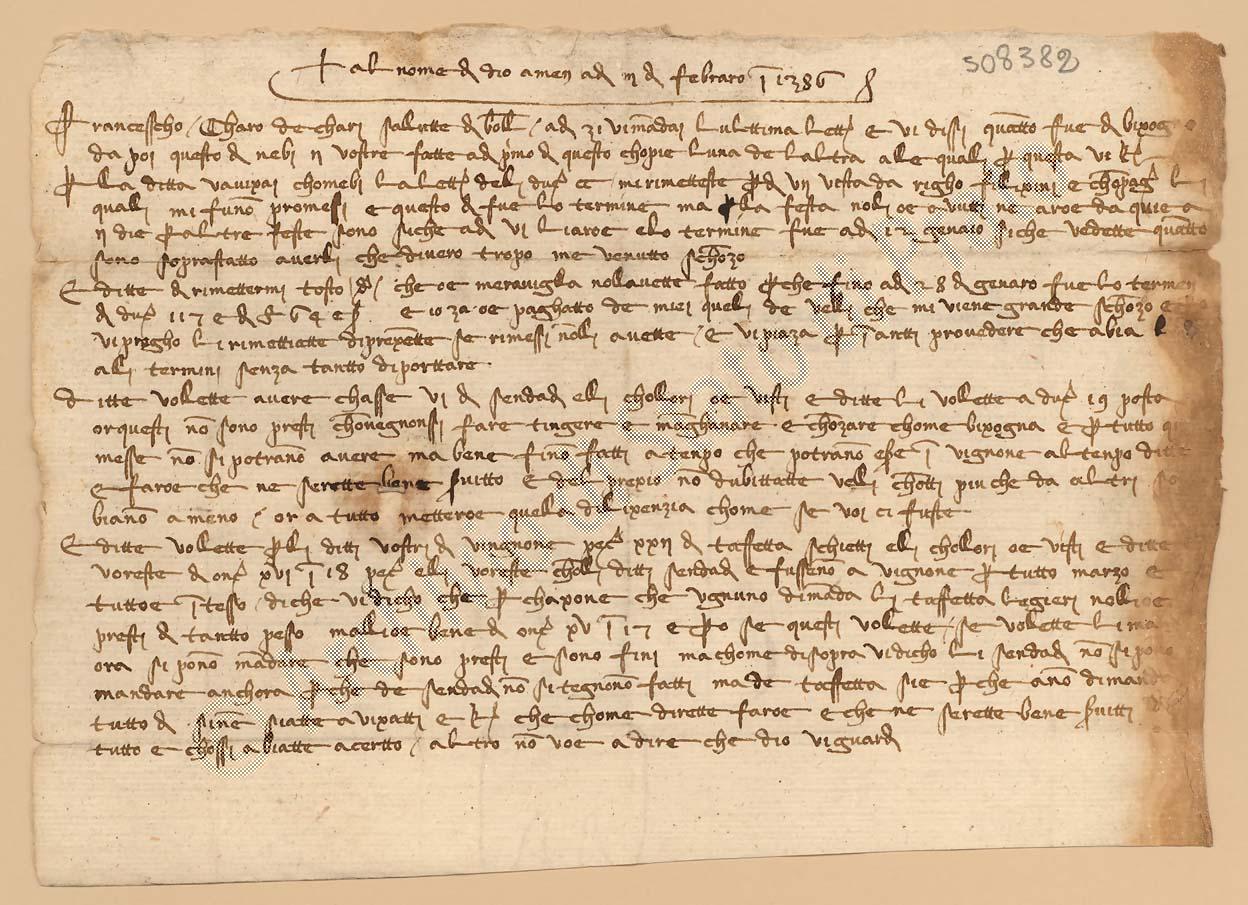 508382
+ al nome d dio amen adi iii d febraro 1386
Francesscho Charo de chari salutte d boll adi 31 vi mādai l ulttima lett e vi dissi quātto fue d bixogno
da poi questo d nebi ii vostre fatte adi pimo d questo chopie luna de laltra ale quali p questa vi
p la ditta vavixai chomebi la lett deli duc cc mi rimetteste p d vii vista da righo filipini e chōpag li
quali mi funō promessi e questo d fue lo termine ma p la festa noli oe avutti ne aroe da quie a
ii die p altre feste sono siche adi vi li aroe e lo termine fue adi 12 gienaio siche vedette quātto
sono soprastatto averli che divero tropo me venutto schōzo
E ditte d rimettermi tosto che oe meraviglia nollavette fatto p che fino adi 28 d genaro fue lo termen
d duc 117 e d e io za oe paghatto de miei queli de velli che mi viene grande schōzo
vi pregho li rimettiette di prexentte se rimessi nōli avette e vi piaza p ī antti provedere che abia
ali termini senza tantto diporttare
ditte vollette avere chasse vi d sendad e li chollori oe visti e ditte li vollette a duc 19 posta
or questi nō sono presti chōvegnonssi fare tingere e māghanare e chōzare chome bixogna e p tutto
messe nō si potranō avere ma bene finō fatti a tenpo che potranō ese ī vignone al tenpo ditte
e faroe che ne serette bene svitto e del prexio nō dubittatte velli chōtti piu che da altri
bianō a meno or a tutto metteroe quella dilixenzia chome se voi ci fuste
E ditte vollette p li ditti vostri d vingnone pec xxii d taffetta schietti e li chollori oe visti e ditte
voreste d onc xvi ī 18 pec e li voreste chōli ditti sendad e fussenō a vignone p tutto marzo e
tuttoe ī tesso di che vi dicho che p chaxone che vgnuno dimāda li taffetta legieri nolli oe
presti d tantto pesso ma lli oe bene d onc xv ī 17 e po se questi vollette se vollette li
ora si ponō mādare che sono presti e sono fini ma chome disopra vi dicho li sendad nō si
mandare anchora p che de sendad nō si tegnonō fatti ma de taffetta sie p che anō dimand
tutto d sine siatte avixatti e che chome dirette faroe e che ne serette bene svitti
tutto e chossi abiatte a certto altro nō voe a dire che dio vi guard